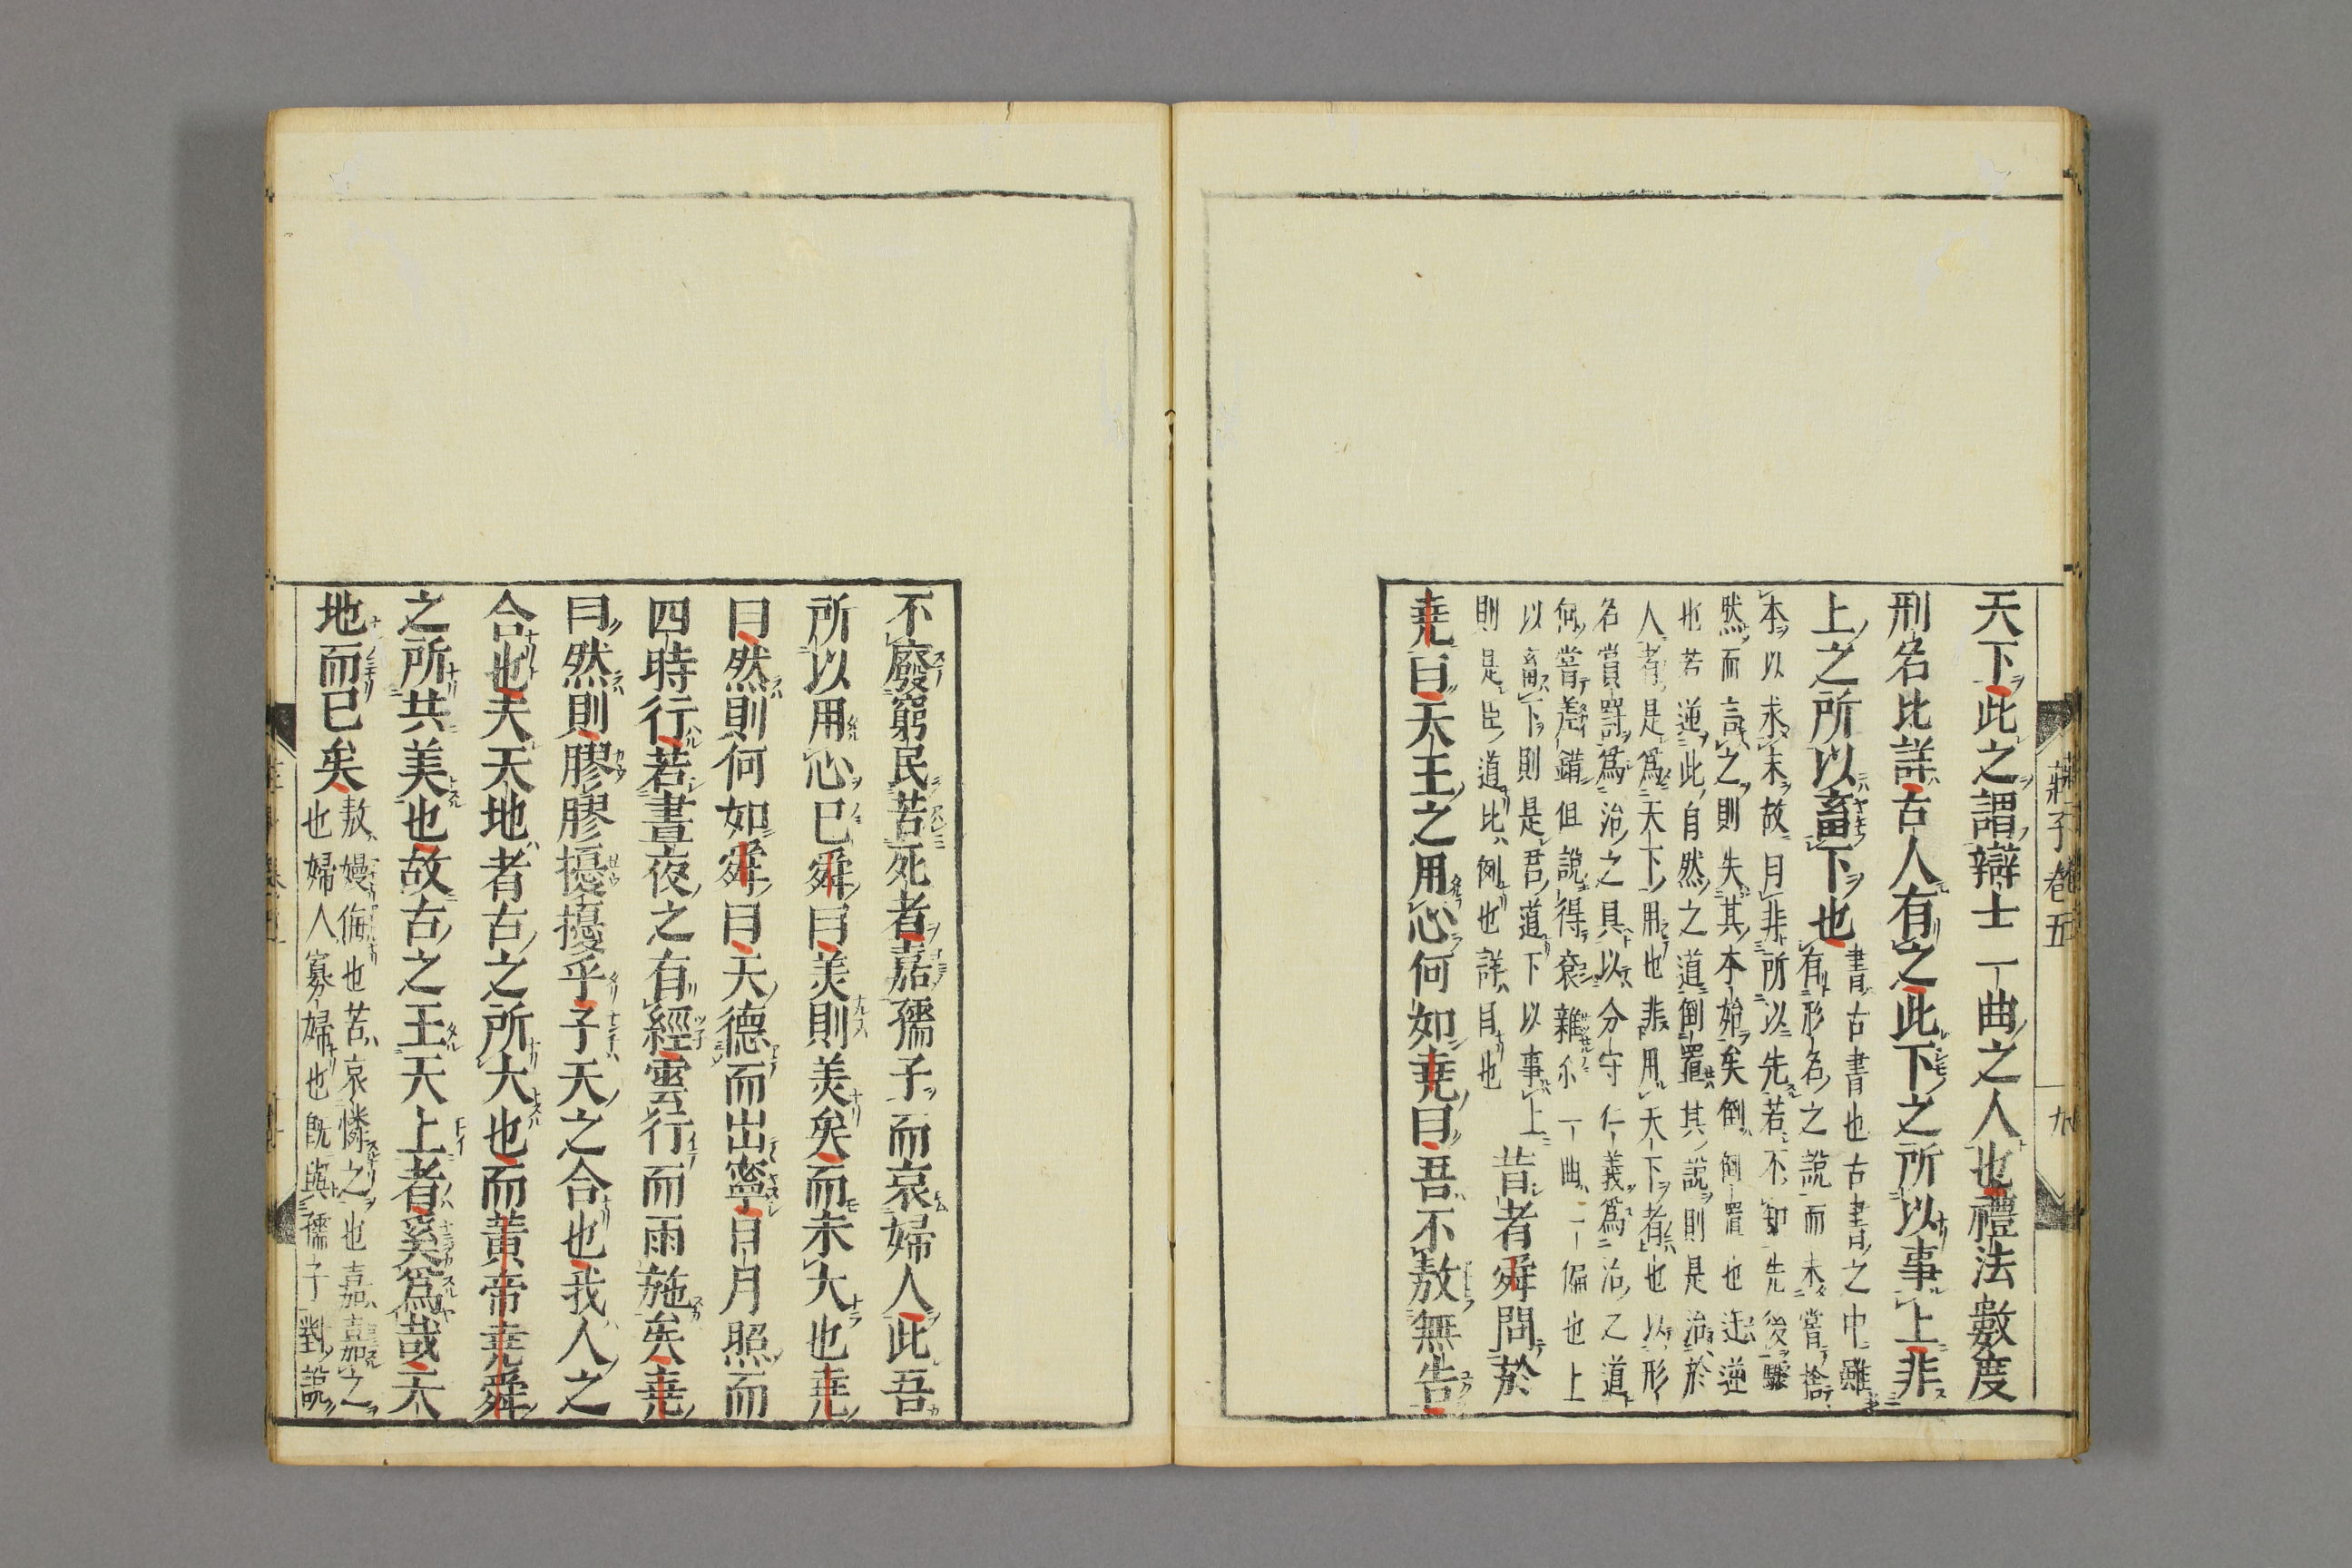 莊子卷五
九
天下此之謂辯士一曲之人也禮法數度
刑名比詳古人有之此下之所以事上非
上之所以畜下也
書古書也古書之中雖
有形名之說而未嘗捨
本以求末故曰非所以先若不知先後驟
然而言之則失其本始矣倒倒置也迕逆
也若逆此自然之道倒置其說則是治於
人者是爲天下用也非用天下者也以形
名賞罰爲治之具以分守仁義爲治之道
何嘗差錯但說得衮雜尒一曲一偏也上
以畜下則是君道下以事上
則是臣道比例也詳目也
昔者舜問於
堯曰天王之用心何如堯曰吾不敖無告
不廢窮民苦死者嘉孺子而哀婦人此吾
所以用心已舜曰美則美矣而未大也堯
曰然則何如舜曰天德而出寧日月照而
四時行若晝夜之有經雲行而雨施矣堯
曰然則膠膠擾擾乎子天之合也我人之
合也夫天地者古之所大也而黃帝堯舜
之所共美也故古之王天上者奚爲哉天
地而已矣
敖嫚侮也苦哀憐之也嘉嘉之
也婦人寡婦也旣與孺子對說